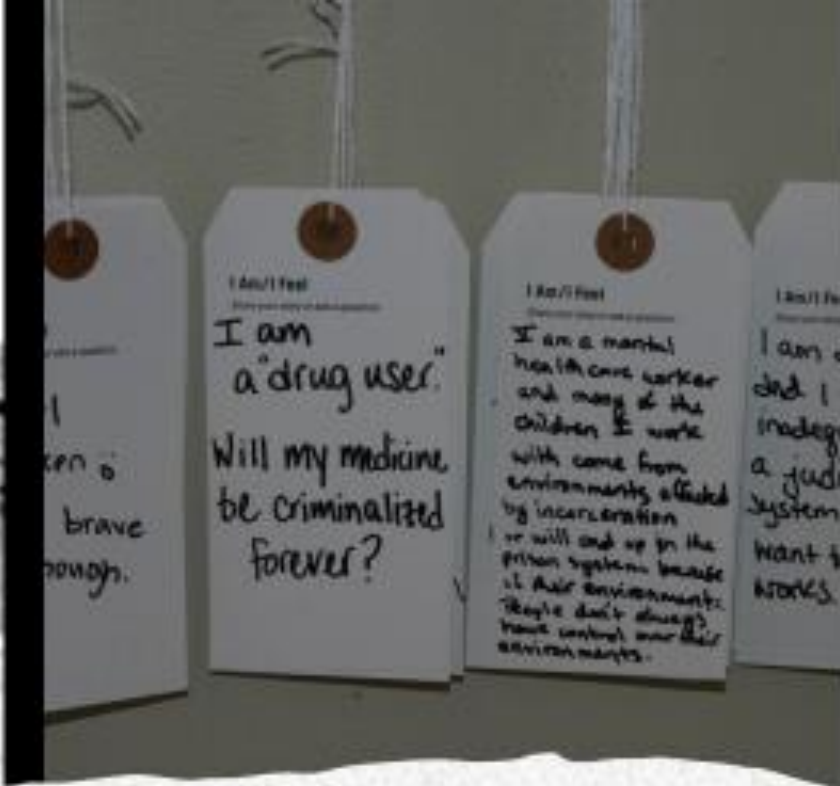 I
brave
I Am/I Feel
I am
a "drug user."
Will my medicine
be criminalized
forever?
I Am/I Feel
I am a mental
health care worker
and many of the
children I work
with come from
environments affected
by incarceration
or will end up in the
prison system because
of their environments.
People don't always
have control over their
environments.
I Am/I Fe
I am
and I
inadeq
a judi
system
want
works.